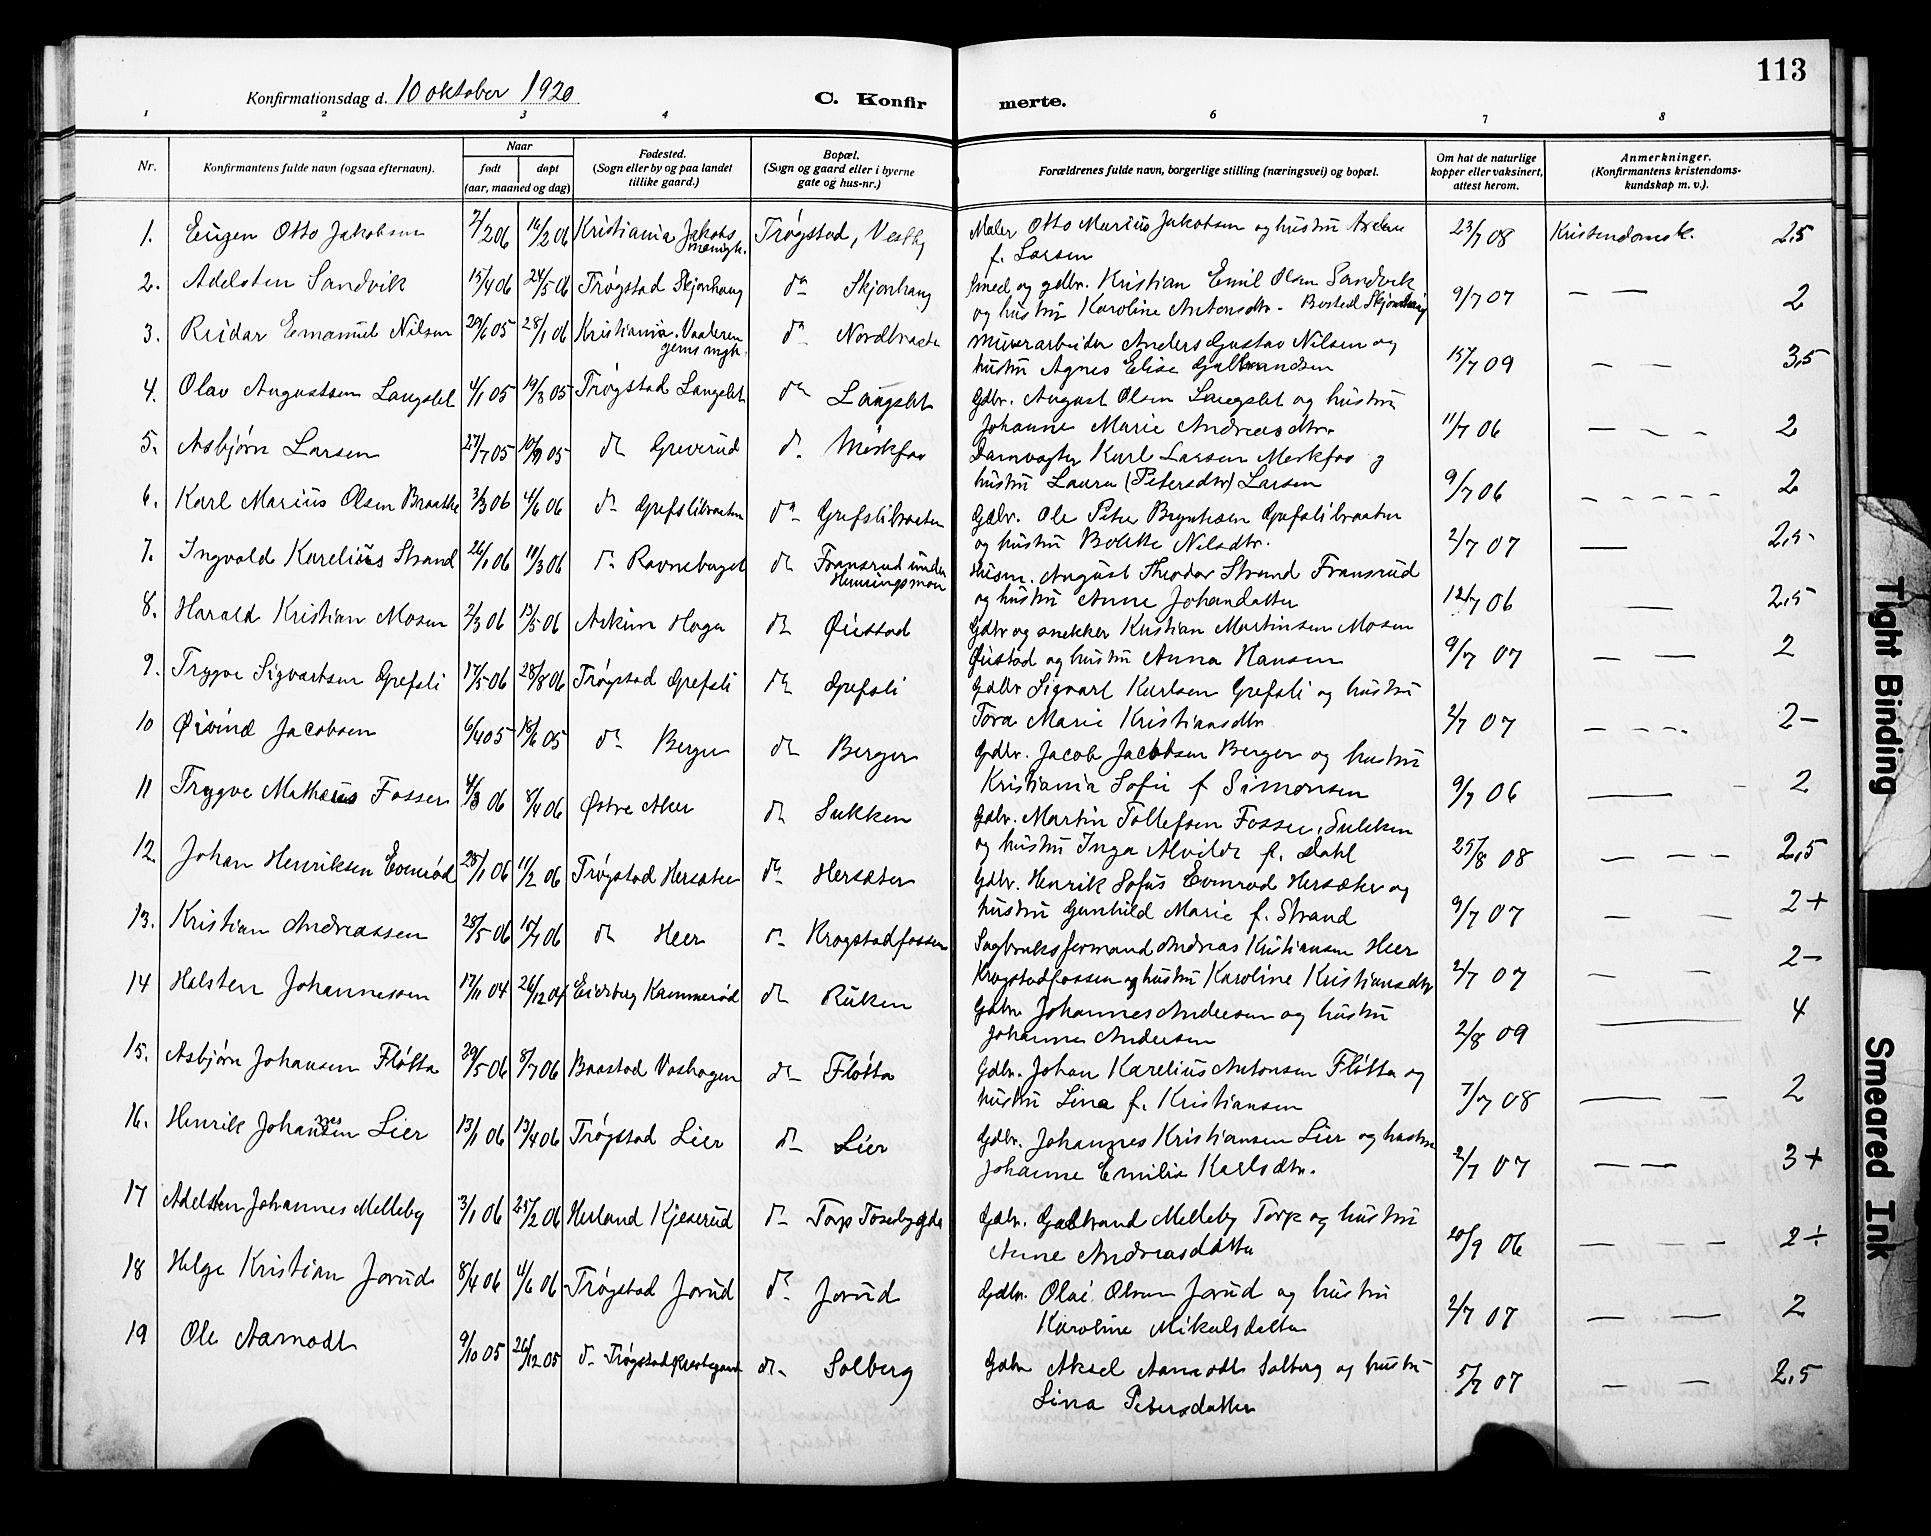 113
Konfirmationsdag d. 10 oktober 1920
C. Konfirmerte.
1 2 3 4 6 7 8
Nr. Konfirmantens fulde navn (ogsaa efternavn). Naar født døpt (aar, maaned og dag) Fødested. (Sogn eller by og paa landet tillike gaard.) Bopæl. (Sogn og gaard eller i byerne gate og hus-nr.) Forældrenes fulde navn, borgerlige stilling (næringsvei) og bopæl. Om hat de naturlige kopper eller vaksinert, attest herom. Anmerkninger. (Konfirmantens kristendomskundskap m. v.).
1. Eugen Otto Jakobsen 7/2 06 16/2 06 Kristiania Jakobs menigh. Trøgstad, Vestby Maler Otto Marius Jakobsen og hustru 23/7 08 Kristendomsk. 2,5
f. Larsen
2. Adelsten Sandvik 15/4 06 24/5 06 Trøgstad Skjønhaug do Skjønhaug Smed og gdbr. Kristian Emil Olsen Sandvik 9/7 07 — — 2
og hustru Karoline Antonsdtr. Bosted Skjønhaug
3. Reidar Emanuel Nilsen 29/6 05 28/1 06 Kristiania Vaalerengens mgh. do Nordbraate Murerarbeider Anders Gustav Nilsen og 15/7 09 — — 3,5
hustru Agnes Elise Gulbrandsen
4. Olav Augustsen Langslet 4/1 05 19/3 05 Trøgstad Langslet do Langslet Gdbr. August Olsen Langslet og hustru 11/7 06 — — — 2
Johanne Marie Andreasdtr.
5. Asbjørn Larsen 27/7 05 10/9 05 do Greverud do Mørkfos Damvogter Karl Larsen Mørkfos og 9/7 06 — — — 2
hustru Laura (Petersdtr) Larsen
6. Karl Marius Olsen Braatte 3/3 06 4/6 06 do Grefslibraaten do Grefslibraaten Gdbr. Ole Peter Brynhsen Grefslibraaten 2/7 07 — 2,5-
og hustru Bolette Nilsdtr.
7. Ingvald Karelius Strand 26/1 06 18/3 06 do Ravnehaget do Fransrud under Henningsmoen Husm. August Theodor Strand Fransrud 12/7 06 — 2,5
og hustru Anne Johansdatter
8. Harald Kristian Mosen 2/3 06 13/5 06 Askim Haga do Øistad Gdbr og snekker Kristian Martinsen Mosen 9/7 07 — — 2
Øistad og hustru Anna Hansen
9. Trygve Sigvartsen Grefsli 17/5 06 28/8 06 Trøgstad Grefsli do Grefsli Gdbr Sigvart Karlsen Grefsli og hustru 2/7 07 — — — 2-
Tora Marie Kristiansdtr
10 Øivind Jacobsen 6/4 05 18/6 05 do Berger do Berger Gdbr. Jacob Jacobsen Berger og hustru 9/7 06 — - 2
Kristiania Sofie f Simonsen
11 Trygve Matheus Fosser 4/3 06 8/4 06 Østre Aker do Sukken Gdbr. Martin Tollefsen Fosser, Sukken 25/8 08 — — — 2,5
og hustru Inga Alvilde f. Dahl
12. Johan Henriksen Evenrød 25/1 06 11/2 06 Trøgstad Hersæter do Hersæter Gdbr. Henrik Sofus Evenrød Hersæter og 9/7 07 — — 2+
hustru Gunhild Marie f. Strand
13. Kristian Andreassen 28/5 06 15/7 06 do Heer do Krogstadfossen Sagbruksformand Andreas Kristiansen Heer 2/7 07 — — 2-
Krogstadfossen og hustru Karoline Kristiansdtr
14 Halsten Johannessen 17/11 04 26/12 04 Eidsberg Kammerød do Ruken Gdbr Johannes Andersen og hustru 2/8 09 — 4
Johanne Andersen
15. Asbjørn Johansen Fløtta 29/5 06 8/7 06 Baastad Vashagen do Fløtta Gdbr. Johan Karelius Antonsen Fløtta og 7/7 08 — — 2
hustru Lina f. Kristiansen
16. Henrik Johannessen Lier 13/1 06 13/4 06 Trøgstad Lier do Lier Gdbr. Johannes Kristiansen Lier og hustru 2/7 07 — — 3+
Johanne Emilie Karlsdtr.
17 Adelsten Johannes Melleby 3/1 06 25/2 06 Herland Kjeserud do Torp Gdbr. Gulbrand Melleby Torp og hustru 20/9 06 — — — 2÷
Anne Andreasdatter
18 Helge Kristian Jorud 8/4 06 4/6 06 Trøgstad Jorud do Jorud Gdbr. Olai Olsen Jorud og hustru 2/7 07 — — — 2
Karoline Mikalsdatter
19 Ole Aamodt 9/10 05 26/12 05 do Trøgstad Prestegaard do Solberg Gdbr Aksel Aamodt Solberg og hustru 5/7 07 — — 2,5
Lina Petersdatter
Tight Binding
Smeared Ink